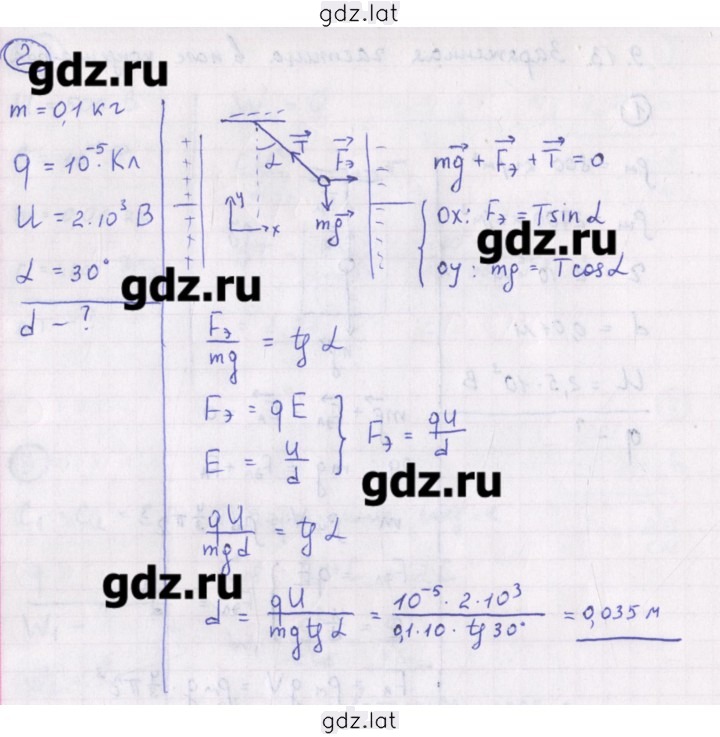 gdz.lat
2
gdz.ru
m = 0,1 кг
q = 10⁻⁵ Кл
U = 2·10³ В
α = 30°
gdz.ru
d - ?
α T⃗ F⃗э
mg⃗
y
x
mg⃗ + F⃗э + T⃗ = 0
Ox: Fэ = T sin α
gdz.ru
Oy: mg = T cos α
Fэ/mg = tg α
Fэ = qE
E = U/d
Fэ = qU/d
gdz.ru
qU/mgd = tg α
gdz.ru
d = qU/mg tg α = 10⁻⁵·2·10³/0,1·10·tg 30° = 0,035 м
gdz.lat